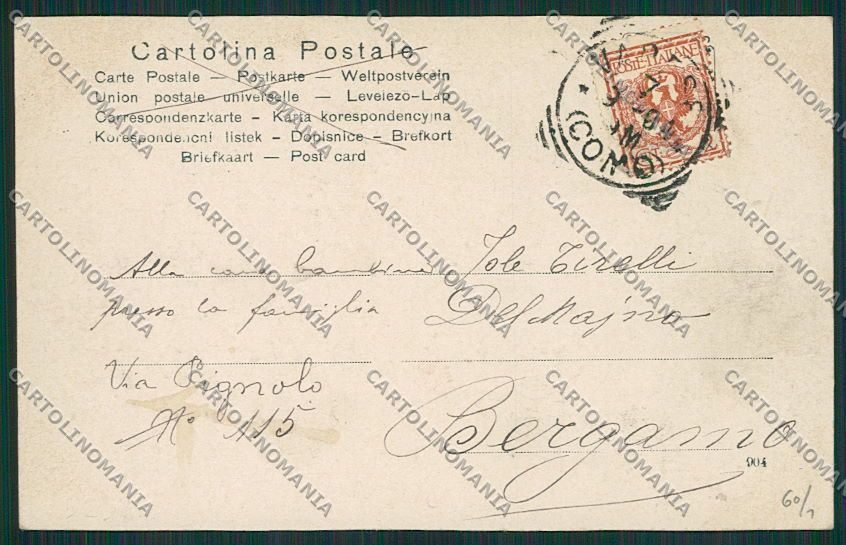 Cartolina Postale
Carte Postale — Postkarte — Weltpostverein
Union postale universelle — Levelezö-Lap
Correspondenzkarte - Karta korespondencyjna
Korespondencni listek - Dopisnice - Brefkort
Briefkaart — Post card
VARESE
(COMO)
POSTE ITALIANE
Alla cara bambina Iole Tirelli
presso la famiglia Del Majno
Via Pignolo
N° 115
Bergamo
904
60/1
CARTOLINOMANIA